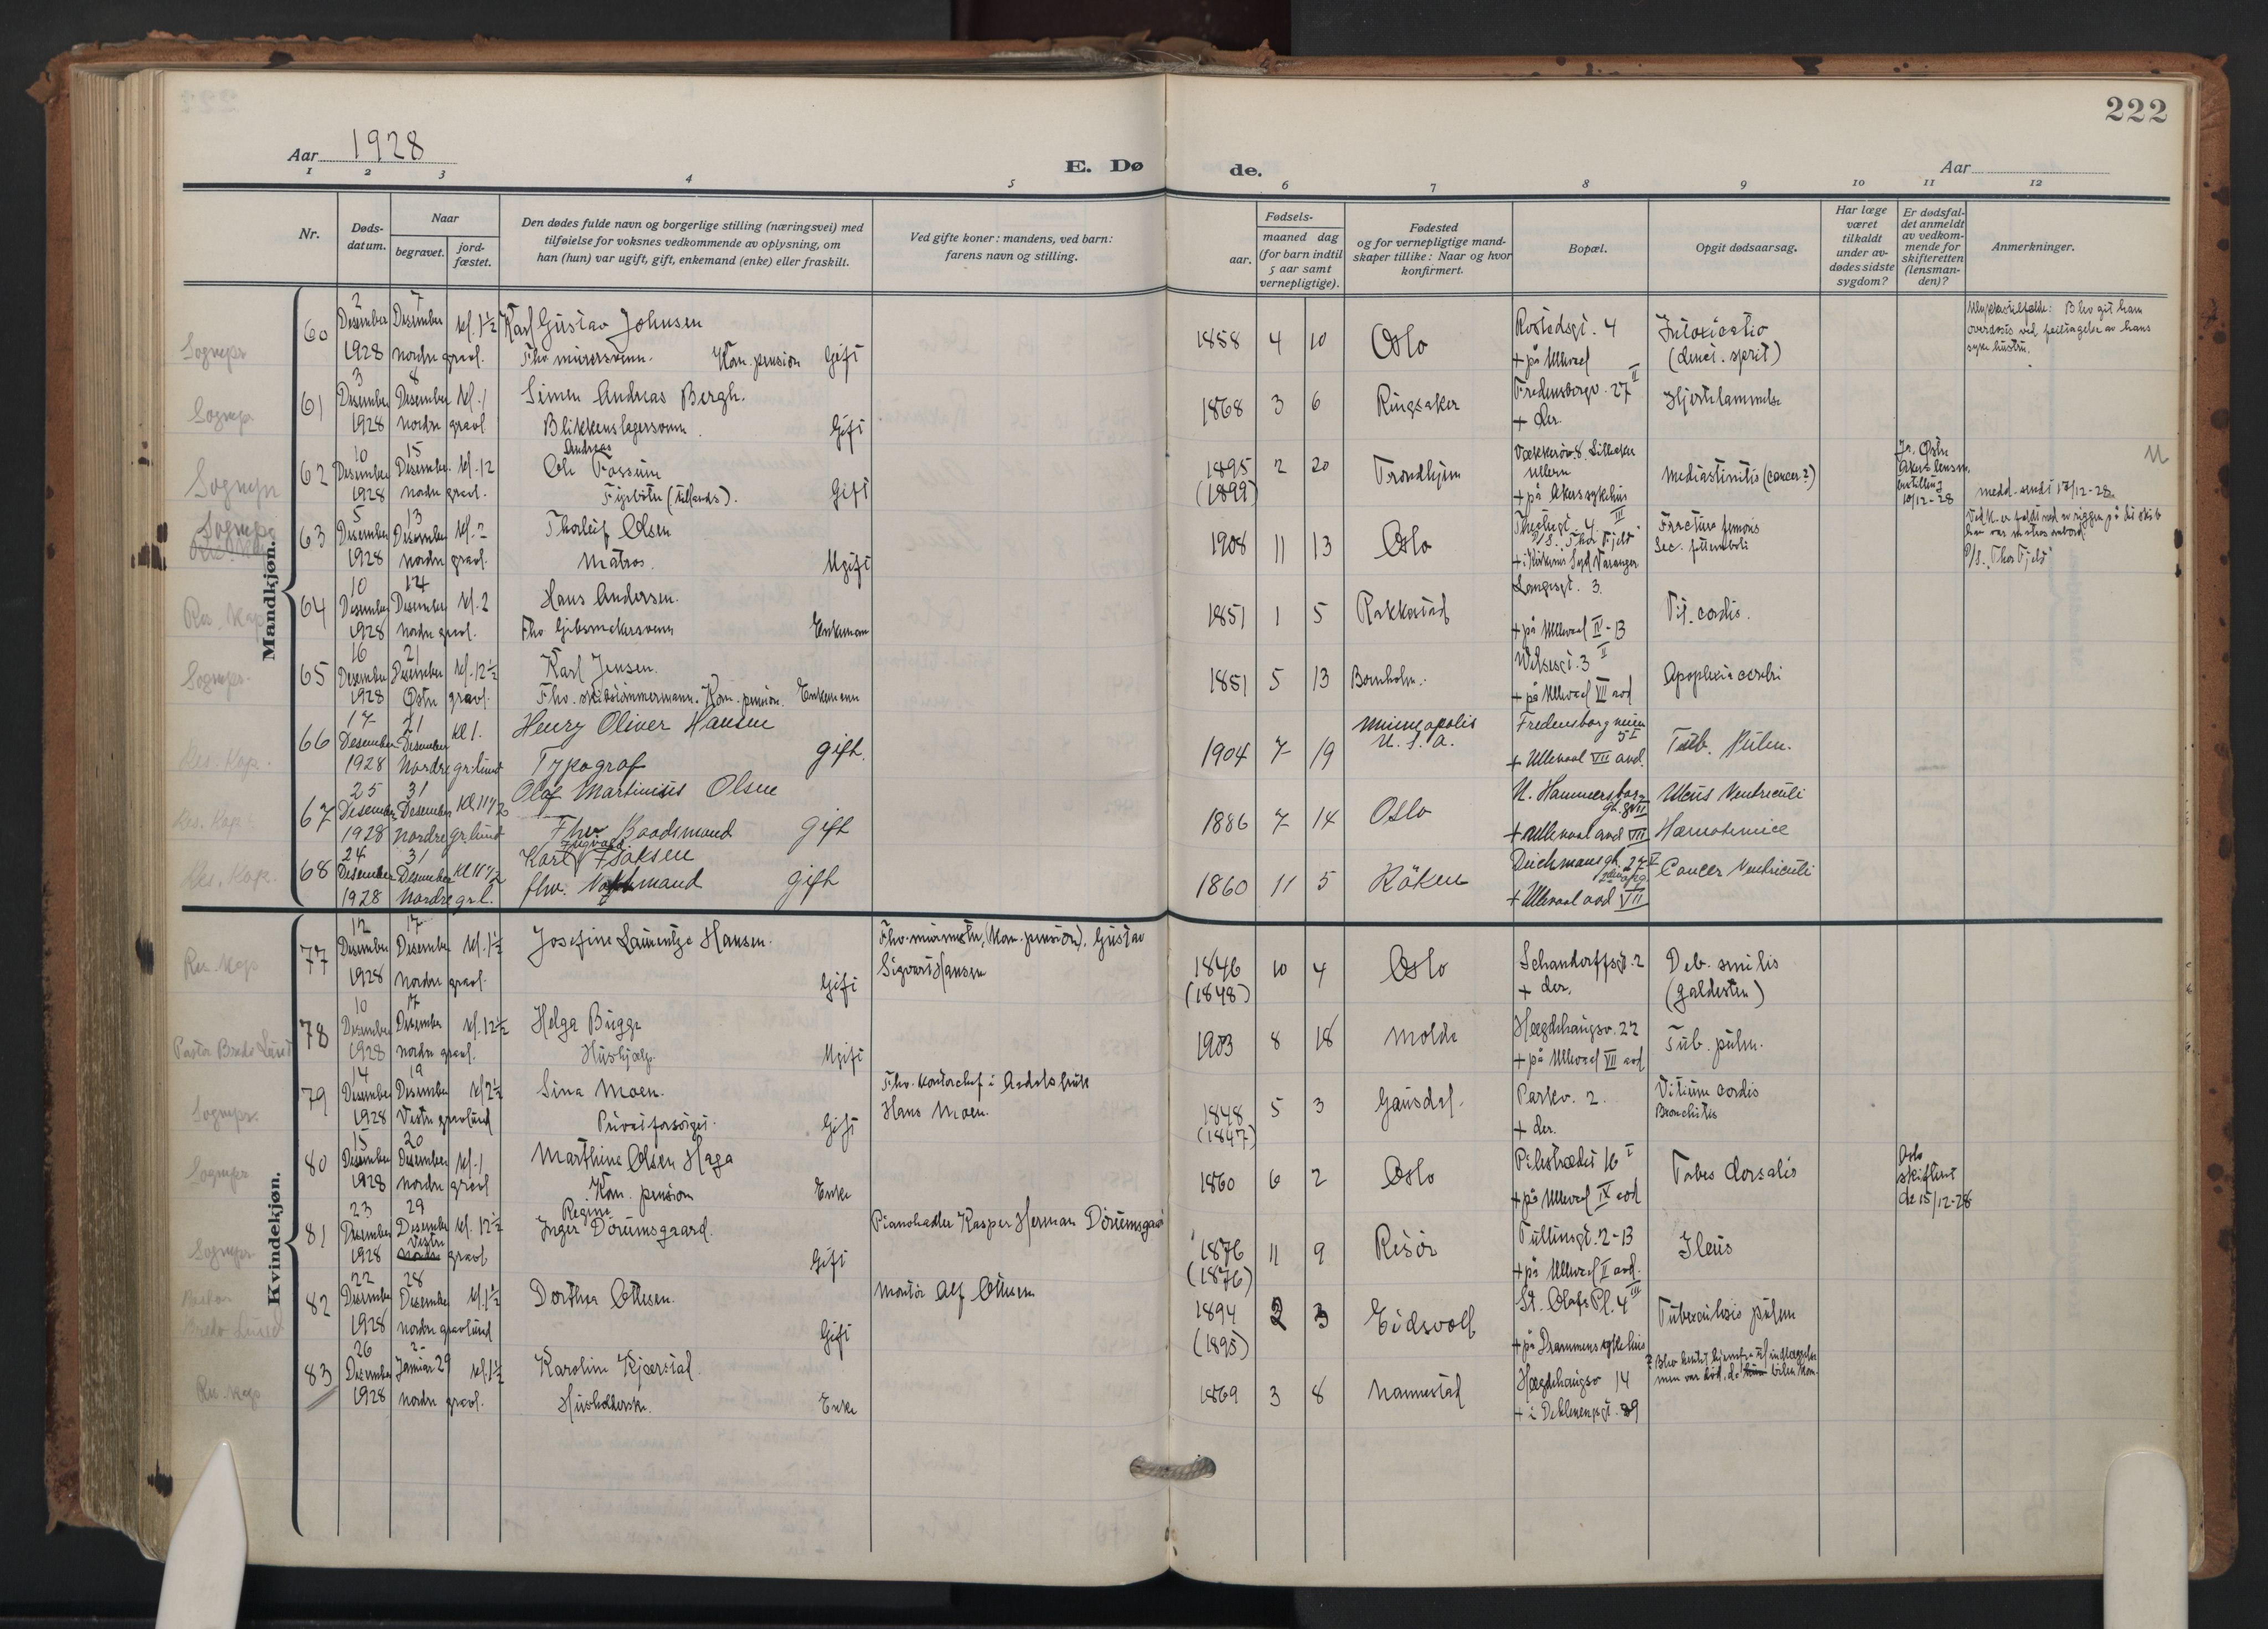 222
Aar 1928
E. Dø de.
Aar
1 2 3 4 5 6 7 8 9 10 11 12
Nr.
Døds-
datum.
Naar
begravet.
jord-
fæstet.
Den dødes fulde navn og borgerlige stilling (næringsvei) med
tilføielse for voksnes vedkommende av oplysning, om
han (hun) var ugift, gift, enkemand (enke) eller fraskilt.
Ved gifte koner: mandens, ved barn:
farens navn og stilling.
Fødsels-
aar.
maaned dag
(for barn indtil
5 aar samt
vernepligtige).
Fødested
og for vernepligtige mand-
skaper tillike: Naar og hvor
konfirmert.
Bopæl.
Opgit dødsaarsag.
Har læge
været
tilkaldt
under av-
dødes sidste
sygdom?
Er dødsfal-
det anmeldt
av vedkom-
mende for
skifteretten
(lensman-
den)?
Anmerkninger.
Mandkjøn.
Sognepr
60 2 Desember 1928 7 Desember Nordre gravl. kl. 1½
Karl Gustav Johnsen
Fhv murersvenn. Kom. pension Gift
1858 4 10 Oslo
Rostedsgt. 4
+ på Ullevaal
Intoxicatio
(denat. sprit)
Ulykkestilfælde: Blev git ham
overdosis ved feiltagelse av hans
syke hustru.
Sognepr
61 3 Desember 1928 8 Desember Nordre gravl kl. 1
Simen Andreas Bergh.
Blikkenslagersvenn. Gift
1868 3 6 Ringsaker
Fredensborgv. 27 II
+ der.
Hjertelammelse
Sognepr
62 10 Desember 1928 15 Desember Nordre gravl. kl. 12
Andreas
Ole Fossum
Fyrbøter (tillands). Gift
1895 (1899) 2 20 Trondhjem
Vækkerøv. 8. Lilleaker
Ullern
+ på Akers sykehus
Mediastinitis (cancer?)
Ja. Østre
Akers lensm.
10/12-28
medd. sendt 17/12-28
Sognepr
63 5 Desember 1928 13 Desember Nordre gravl. kl. 2
Thorleif Olsen
Matros. Ugift
1908 11 13 Oslo
D/S. "Thor Fjeld"
+ i Kirkenes Syd Varanger
Fractura femoris
Sec. fettemboli
D/S. "Thor Fjeld"
Res. Kap
64 10 Desember 1928 14 Desember Nordre gravl. kl. 2
Hans Andersen.
Fhv Gibsmakersvenn Enkemann
1851 1 5 Rakkestad
Langesgt. 3.
+ på Ullevaal IV-B
Vit. cordis.
Sognepr.
65 16 Desember 1928 21 Desember Østre gravl. kl. 12½
Karl Jensen.
Fhv. skibstømmermann. Kom. pension. Enkemann
1851 5 13 Bornholm.
Wilsesgt. 3 II
+ på Ullevaal VII avd
Apoplexia cerebri
Res. Kap.
66 17 Desember 1928 21 Desember Nordre gr:lund Kl 1.
Henry Oliver Hansen
Typograf gift.
1904 7 19 Minneapolis
U. S. A.
Fredensborgveien
5 I
+ Ullevaal VII avd.
Tub. Pulm.
Res. Kap
67 25 Desember 1928 31 Desember Nordre gr.lund Kl 11½
Olaf Martinius Olsen
Fhv. Baadsmand Gift
1886 7 14 Oslo
N. Hammersborg
+ Ullevaal avd VIII
Ulcus Ventriculi
Hæmatemice
Res. Kap.
68 24 Desember 1928 31 Desember Nordre gr.l. Kl 11½
Ingvald
Karl Isaksen
fhv. gift
1860 11 5 Röken
Deichmansgt. 27 V
+ Ullevaal avd VII
Cancer Ventriculi
Kvindekjøn.
Res. Kap
77 12 Desember 1928 17 Desember Nordre gravl. kl. 1½
Josefine Laurentze Hansen.
Gift
Fhv. murmester, (Kom. pension), Gustav
Sigvart Hansen
1846 (1848) 10 4 Oslo
Schandorffsgt. 2
+ der.
Deb. senilis
(galdesten)
Pastor Bredo Lund
78 10 Desember 1928 17 Desember Nordre gravl. kl. 12½
Helga Bugge
Hushjælp. Ugift
1903 8 18 Molde
Hægdehaugsv. 22
+ på Ullevaal VII avd
Tub. pulm.
Sognepr.
79 14 Desember 1928 19 Desember Vestre gravlund kl 2½
Sina Moen.
Privat forsørget. Gift
Fhv. kontorchef i
Hans Moen.
1848 (1847) 5 3 Gausdal.
Parkv. 2.
+ der.
Vitium cordis
Bronchitis
Sognepr
80 15 Desember 1928 20 Desember Nordre gravl kl. 1
Marthine Olsen Haga
Kom. pension Enke
1860 6 2 Oslo
Pilestrædet 16 I
+ på Ullevaal IV avd
Tabes dorsalis
Oslo
skifteret
de 15/12-28
Sognepr
81 23 Desember 1928 29 Desember Vestre gravl kl. 12½
Regine
Inger Dørumsgaard.
Gift
Pianohandler Kasper Herman Dørumsgaard
1876 (1876) 11 9 Risör
Tullinsgt. 2-B
+ på Ullevaal II avd.
Ileus
Pastor
Bredo Lund
82 22 Desember 1928 28 Desember Nordre gravlund kl. 1½
Dorthea Ottesen.
Gift
Montör Alf Ottesen
1894 (1895) 2 3 Eidsvoll
St. Olafs Pl. 4 III
+ på Drammens sykehus
Tuberculosis pulm
Res. Kap
83 26 Desember 1928 2 Januar 29 Nordre gravl. kl. 1½
Karoline Kjærstad
Husholderske. Enke
1869 3 8 Nannestad
Hægdehaugsv 14
+ i St. Clemensgt. 89
? Blev hentet hjemfra til indlæggelse
men var död, da bilen kom.